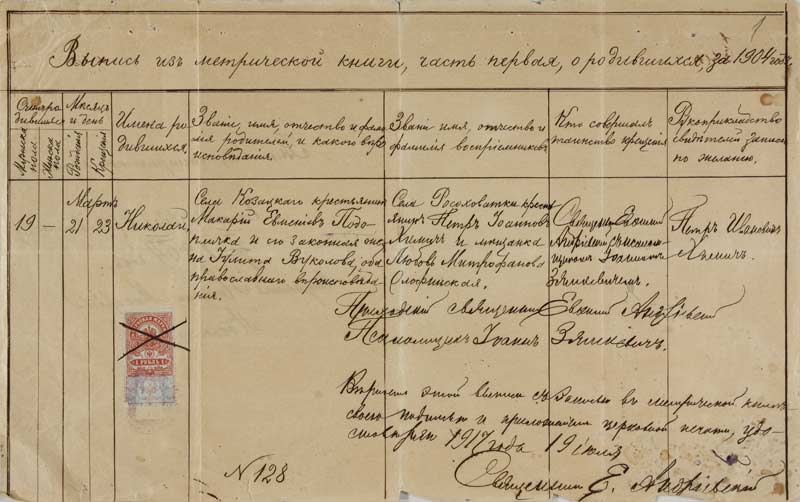 1
Выпись изъ метрической книги, часть первая, о родившихся, за 1904 годъ.
Счетъ родившихся
Мужеска пола
Женска пола
Мѣсяцъ и день
Рожденія
Крещенія
Имена родившихся.
Званіе, имя, отчество и фамилія родителей, и какого вѣроисповѣданія.
Званіе имя, отчество и фамилія воспріемниковъ.
Кто совершалъ таинство крещенія
Рукоприкладство свидѣтелей записи по желанію.
19
—
Мартъ
21
23
Николай,
Села Козацкаго крестьянинъ
Макарій Евметіевъ Подо
и его законная же
на Гулита Вуколова, оба
православнаго вѣроисповѣда
нія.
Села Росоховатки кресть
янинъ Петръ Іоанновъ
Химичъ и мѣщанка
Любовь Митрофанова
Священникъ Евкимій
Андріевскій съ псалом
щикомъ Іоанномъ
Зянкевичемъ.
Петръ Ивановичъ
Химичъ.
1 РУБЛЬ 1
Приходскій священникъ Евкимій Андріевскій
Псаломщикъ Іоаннъ Зянкевичъ.
Вѣрность этой выписи съ записью въ метрической книгѣ
своею подписью и приложеніемъ церковной печати, удо
стовѣряю 1917 года 19 іюля
N 128
Священникъ Е. Андріевскій